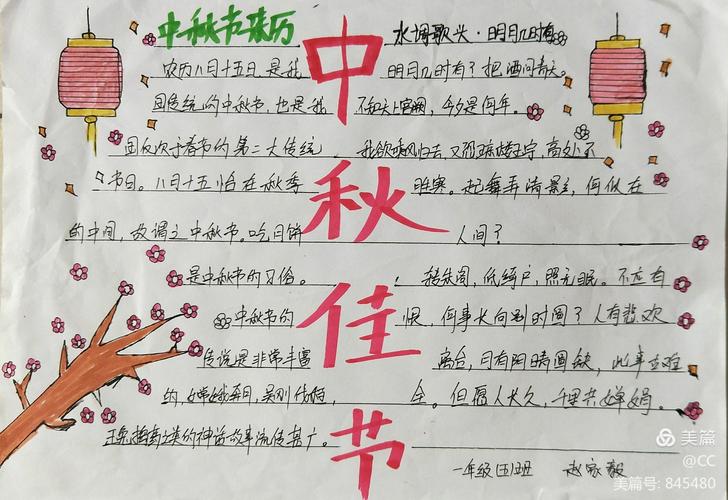 中秋节来历
农历八月十五日,是我
国传统的中秋节,也是我
国仅次于春节的第二大传统
节日。八月十五恰在秋季
的中间,故谓之中秋节。吃月饼
是中秋节的习俗。
中秋节的
传说是非常丰富
的,嫦娥奔月,吴刚伐桂,
玉兔捣药之类的神话故事流传甚广。
中
秋
佳
节
水调歌头·明月几时有
明月几时有?把酒问青天。
不知天上宫阙,今夕是何年。
我欲乘风归去,又恐琼楼玉宇,高处不
胜寒。起舞弄清影,何似在
人间?
转朱阁,低绮户,照无眠。不应有
恨,何事长向别时圆?人有悲欢
离合,月有阴晴圆缺,此事古难
全。但愿人长久,千里共婵娟。
一年级(五)班 赵家毅
美篇
@CC
美篇号: 845480